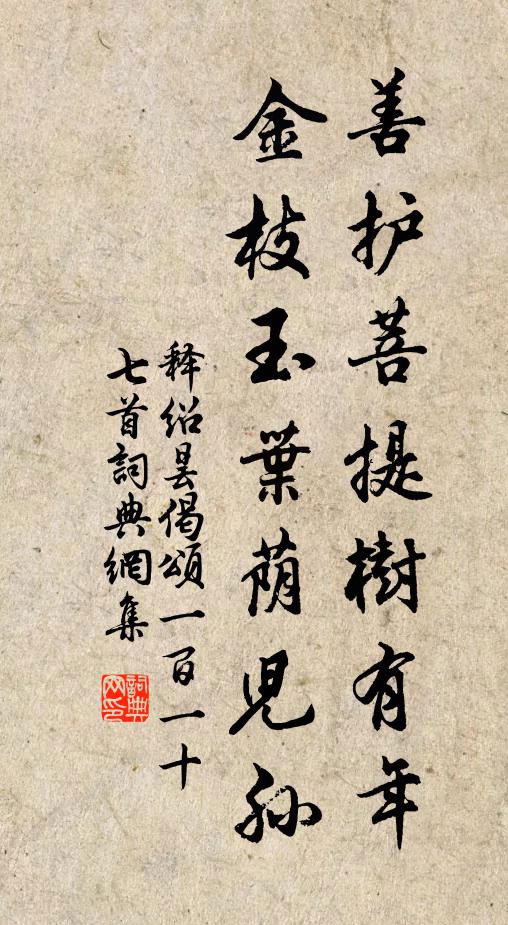 善护菩提樹有年
金枝玉葉荫児孙
释绍昙偈颂一百一十
七首詞典網集
詞典网印